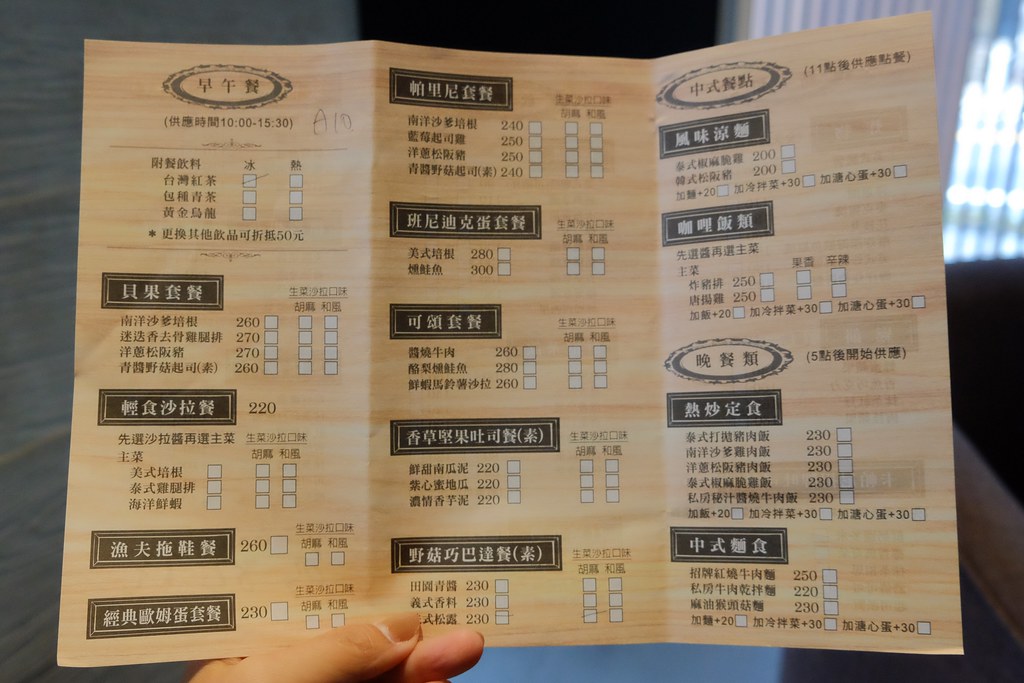 早午餐
(供應時間10:00-15:30)
A10
附餐飲料 冰 熱
台灣紅茶
包種青茶
黃金烏龍
* 更換其他飲品可折抵50元
貝果套餐
生菜沙拉口味
胡麻 和風
南洋沙爹培根 260
迷迭香去骨雞腿排 270
洋蔥松阪豬 270
青醬野菇起司(素) 260
輕食沙拉餐 220
先選沙拉醬再選主菜
生菜沙拉口味
主菜 胡麻 和風
美式培根
泰式雞腿排
海洋鮮蝦
漁夫拖鞋餐 260
生菜沙拉口味
胡麻 和風
經典歐姆蛋套餐 230
生菜沙拉口味
胡麻 和風
帕里尼套餐
生菜沙拉口味
胡麻 和風
南洋沙爹培根 240
藍莓起司雞 250
洋蔥松阪豬 250
青醬野菇起司(素) 240
班尼迪克蛋套餐
生菜沙拉口味
胡麻 和風
美式培根 280
燻鮭魚 300
可頌套餐
生菜沙拉口味
胡麻 和風
醬燒牛肉 260
酪梨燻鮭魚 280
鮮蝦馬鈴薯沙拉 260
香草堅果吐司餐(素)
生菜沙拉口味
胡麻 和風
鮮甜南瓜泥 220
紫心蜜地瓜 220
濃情香芋泥 220
野菇巧巴達餐(素)
生菜沙拉口味
胡麻 和風
田園青醬 230
義式香料 230
式松露 230
中式餐點
(11點後供應點餐)
風味涼麵
泰式椒麻脆雞 200
韓式松阪豬 200
加麵+20 加冷拌菜+30 加溏心蛋+30
咖哩飯類
先選醬再選主菜
主菜 果香 辛辣
炸豬排 250
唐揚雞 250
加飯+20 加冷拌菜+30 加溏心蛋+30
晚餐類
(5點後開始供應)
熱炒定食
泰式打拋豬肉飯 230
南洋沙爹雞肉飯 230
洋蔥松阪豬肉飯 230
泰式椒麻脆雞飯 230
私房秘汁醬燒牛肉飯 230
加飯+20 加冷拌菜+30 加溏心蛋+30
中式麵食
招牌紅燒牛肉麵 250
私房牛肉乾拌麵 220
麻油猴頭菇麵 230
加麵+20 加冷拌菜+30 加溏心蛋+30